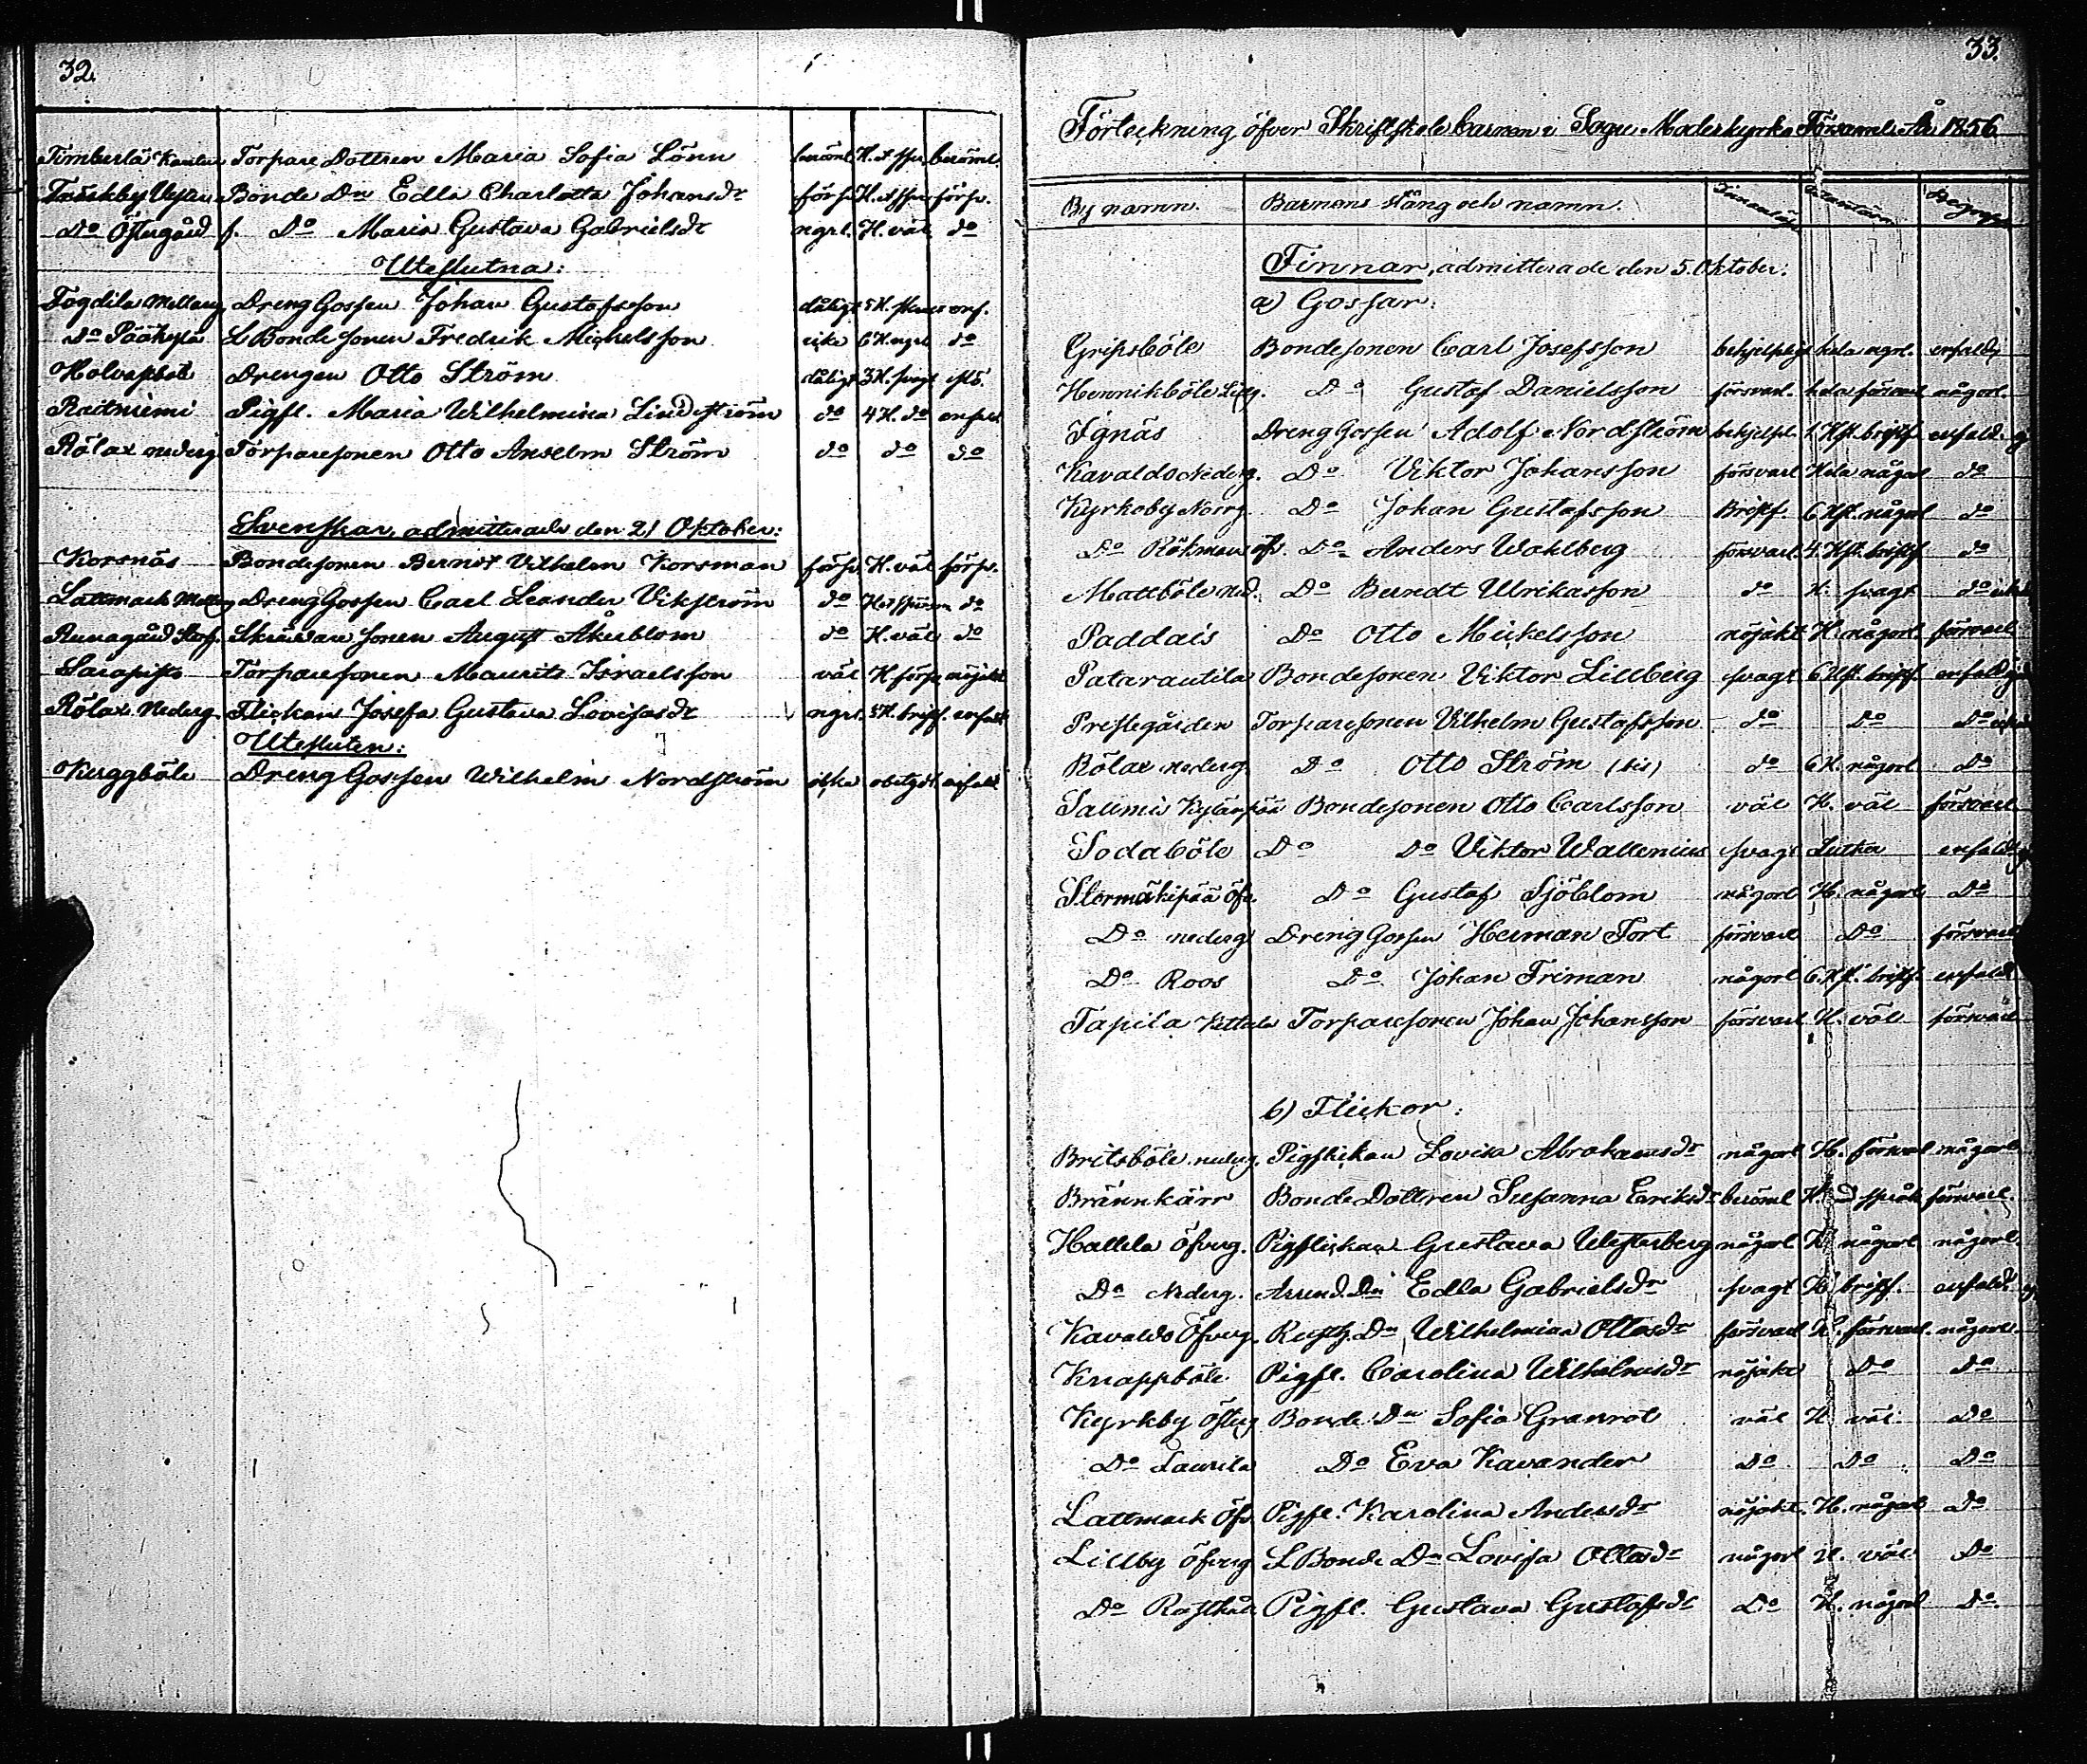 32.
Timberlä Torpare Dottren Maria Sofia Lönn beröml. H. o. spr. beröml.
Bonde Dn Edla Charlotta Johansdr försv. försv.
Do Östergård f. Do Maria Gustava Gabrielsdr ngrl. H. väl do
Uteslutna:
Togdila Melleng Dreng Gossen Johan Gustafsson dåligt enf.
Do Pääkylä L Bonde sonen Fredrik Michelsson icke 6 H. ngrl do
Drengen Otto Ström dåligt 3 H. svagt
Raitniemi Pigfl. Maria Wilhelmina Lindström do 4 H. do enfald
Rölax nederg Torparesonen Otto Anselm Ström do do do
Svenskar, admitterade den 21 Oktober:
Korsnäs Bondesonen Bernt Vilhelm Korsman försv. H. väl försv.
Lattmack Melleng Dreng Gossen Carl Leander Vikström do do
Runagård Skräddare sonen August Åkerblom do H. väl do
Sarapisto Torparesonen Maurits Israelsson väl H. försv. nöjakt
Rölax Nederg. Flickan Josefa Gustava Lovisasdr ngrl. 5 H. bristf. enfald
Utesluten:
Kuggböle Dreng Gossen Wilhelm Nordström icke obetydl. enfald
33.
Förteckning öfver Skriftskole barnen i Sagu Moderkyrko Församl. År 1856
By namn. Barnens stånd och namn. Innanläsn Utantäsn Begrepp
Finnar, admitterade den 5. Oktober:
a) Gossar:
Gripsböle Bondesonen Carl Josefsson behjelpligt hela ngrl. enfaldig
Hennikböle Do Gustaf Danielsson försvarl. hela försvarl någorl.
Ignäs Dreng Gossen Adolf Nordström behjelpl. 1 Hft. bristf. enfaldig
Kavaldo Nederg. Do Viktor Johansson försvarl Hela någorl do
Kyrkoby Norrg. Do Johan Gustafsson Bristf. 6 Hft. någorl do
Do Röhmen öfv. Do Anders Wahlberg försvarl. 4. Hft. bristf do
Mattböle Ned. Do Berndt Ulrikasson do H. svagt do
Paddais Do Otto Mickelsson nöjakt H. någorl försvarl
Patarautila Bondesonen Viktor Lillberg svagt 6 Hft. bristf. enfaldig
Prestegården Torparesonen Vilhelm Gustafsson do Do Do
Rölax nederg. Do Otto Ström (bis) do 6 H. någorl Do
Salmis Kylänpää Bondesonen Otto Carlsson väl H. väl försvarl
Sodaböle Do Do Viktor Wallenius svagt Luther enfaldig
Stormäkipää Öfv. Do Gustaf Sjöblom någorl H. någorl Do
Do nederg Dreng Gossen Herman Fort försvarl Do försvarl
Do Roos Do Johan Friman någorl 6. Hft. bristf. enfald
Tapila Kettala Torparesonen Johan Johansson försvarl H. väl försvarl
b) Flickor:
Britsböle nederg. Pigflickan Lovisa Abrahamsdr någorl H. försvarl någorl
Brännkärr Bonde Dottren Susanna Eriksdr beröml H. språk försvarl.
Hallela Öfverg. Pigflickan Gustava Westerberg någorl H. någorl någorl.
Do Nederg. Arrend. Dn Edla Gabrielsdr svagt H. bristf. enfald.
Kavaldo Öfverg. Rusth. Dn Wilhelmina Ottosdr försvarl H. försvarl. någorl.
Knappböle Pigfl. Carolina Wilhelmsdr nöjakt Do Do
Kyrkby Österg Bonde Dn Sofia Granrot väl H väl Do
Do Laurila Do Eva Kavander Do Do Do
Lattmack Öfv. Pigfl. Karolina Andersdr nöjakt. H. någorl Do
Lillby Öfverg L Bonde Dn Lovisa Ottosdr någorl H. väl Do
Do Pigfl. Gustava Gustafsdr Do H. någorl Do.